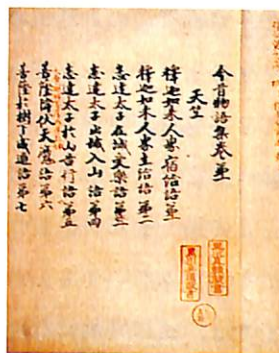 今昔物語集巻第一
天竺
釋迦如来人界宿給語第一
釋迦如来人界生給語第二
悉達太子在城受樂語第三
悉達太子出城入山語第四
悉達太子於山苦行語第五
菩薩降伏天魔語第六
菩薩於樹下成道語第七